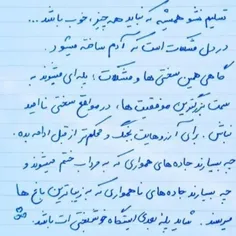 تسلیم نشو همیشه که نباید همه چیز، خوب باشد...
در دل مشکلات است که آدم ساخته میشود.
گاهی همین سختی ها و مشکلات؛ پله ای میشوند به
سمت بزرگترین موفقیت ها، در مواقع سختی ناامید
نباش. برای آرزوهایت بجنگ و محکم تر از قبل ادامه بده.
چه بسیارند جاده های همواری که به مرداب ختم میشوند و
چه بسیارند جاده های ناهمواری که به زیباترین باغ ها
میرسند. شاید پله بعدی ایستگاه خوشبختی ات باشد.